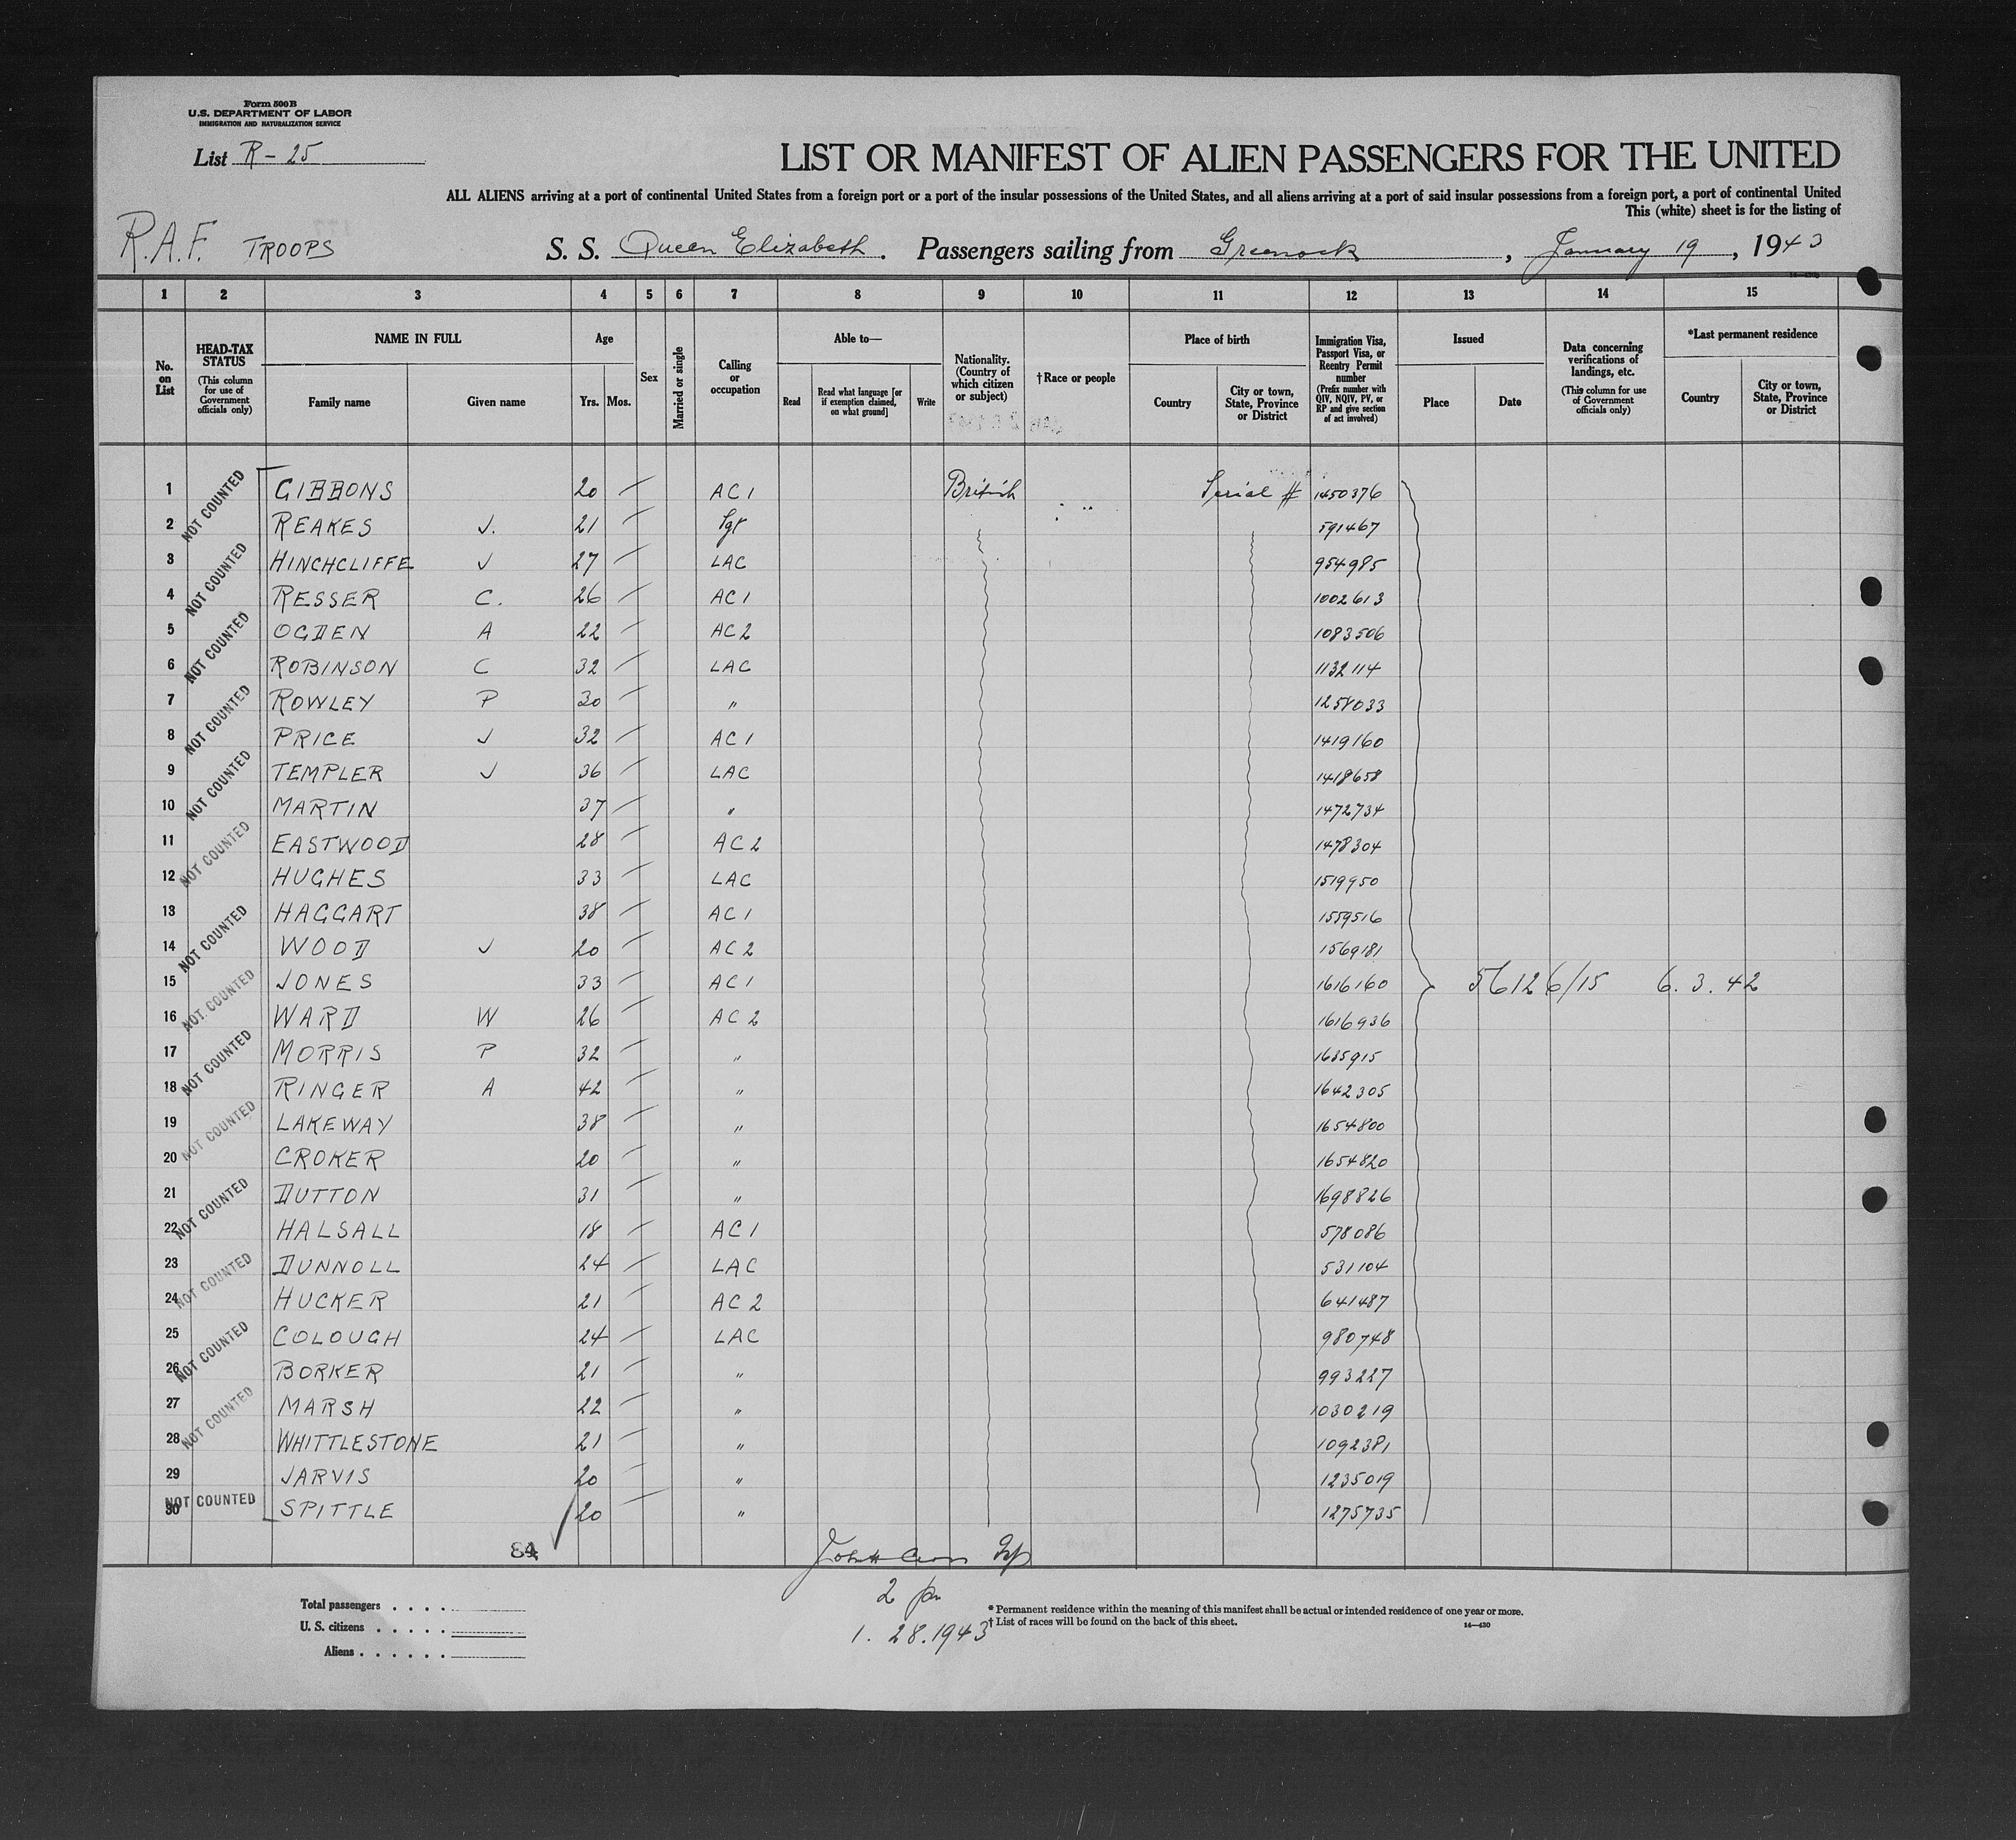 Form 500B
U.S. DEPARTMENT OF LABOR
IMMIGRATION AND NATURALIZATION SERVICE
List R-25
LIST OR MANIFEST OF ALIEN PASSENGERS FOR THE UNITED
ALL ALIENS arriving at a port of continental United States from a foreign port or a port of the insular possessions of the United States, and all aliens arriving at a port of said insular possessions from a foreign port, a port of continental United
This (white) sheet is for the listing of
R.A.F. TROOPS S. S. Queen Elizabeth. Passengers sailing from Greenock, January 19, 1943
1 2 3 4 5 6 7 8 9 10 11 12 13 14 15
No. on List
HEAD-TAX STATUS (This column for use of Government officials only)
NAME IN FULL
Family name Given name
Age
Yrs. Mos.
Sex
Married or single
Calling or occupation
Able to—
Read Read what language [or if exemption claimed, on what ground] Write
Nationality. (Country of which citizen or subject)
†Race or people
Place of birth
Country City or town, State, Province or District
Immigration Visa, Passport Visa, or Reentry Permit number (Prefix number with QIV, NQIV, PV, or RP and give section of act involved)
Issued
Place Date
Data concerning verifications of landings, etc. (This column for use of Government officials only)
*Last permanent residence
Country City or town, State, Province or District
1 NOT COUNTED GIBBONS 20 AC1 British Serial # 1450376
2 REAKES J. 21 Sgt 591467
3 NOT COUNTED HINCHCLIFFE J 27 LAC 954985
4 RESSER C. 26 AC1 1002613
5 NOT COUNTED OGDEN A 22 AC2 1083506
6 ROBINSON C 32 LAC 1132114
7 NOT COUNTED ROWLEY P 30 " 1258033
8 PRICE J 32 AC1 1419160
9 NOT COUNTED TEMPLER J 36 LAC 1418658
10 MARTIN 37 " 1472734
11 NOT COUNTED EASTWOOD 28 AC2 1478304
12 HUGHES 33 LAC 1519950
13 NOT COUNTED HAGGART 38 AC1 1559516
14 WOOD J 20 AC2 1569181
15 NOT COUNTED JONES 33 AC1 1616160 56126/15 6. 3. 42
16 WARD W 26 AC2 1616936
17 NOT COUNTED MORRIS P 32 " 1635915
18 RINGER A 42 " 1642305
19 NOT COUNTED LAKEWAY 38 " 1654800
20 CROKER 20 " 1654820
21 NOT COUNTED DUTTON 31 " 1698826
22 HALSALL 18 AC1 578086
23 NOT COUNTED DUNNOLL 24 LAC 531104
24 HUCKER 21 AC2 641487
25 NOT COUNTED COLOUGH 24 LAC 980748
26 BORKER 21 " 993227
27 NOT COUNTED MARSH 22 " 1030219
28 WHITTLESTONE 21 " 1092381
29 JARVIS 20 " 1235019
30 NOT COUNTED SPITTLE 20 " 1275735
84
2 pm
1. 28. 1943
Total passengers
U. S. citizens
Aliens
* Permanent residence within the meaning of this manifest shall be actual or intended residence of one year or more.
† List of races will be found on the back of this sheet.
14—430